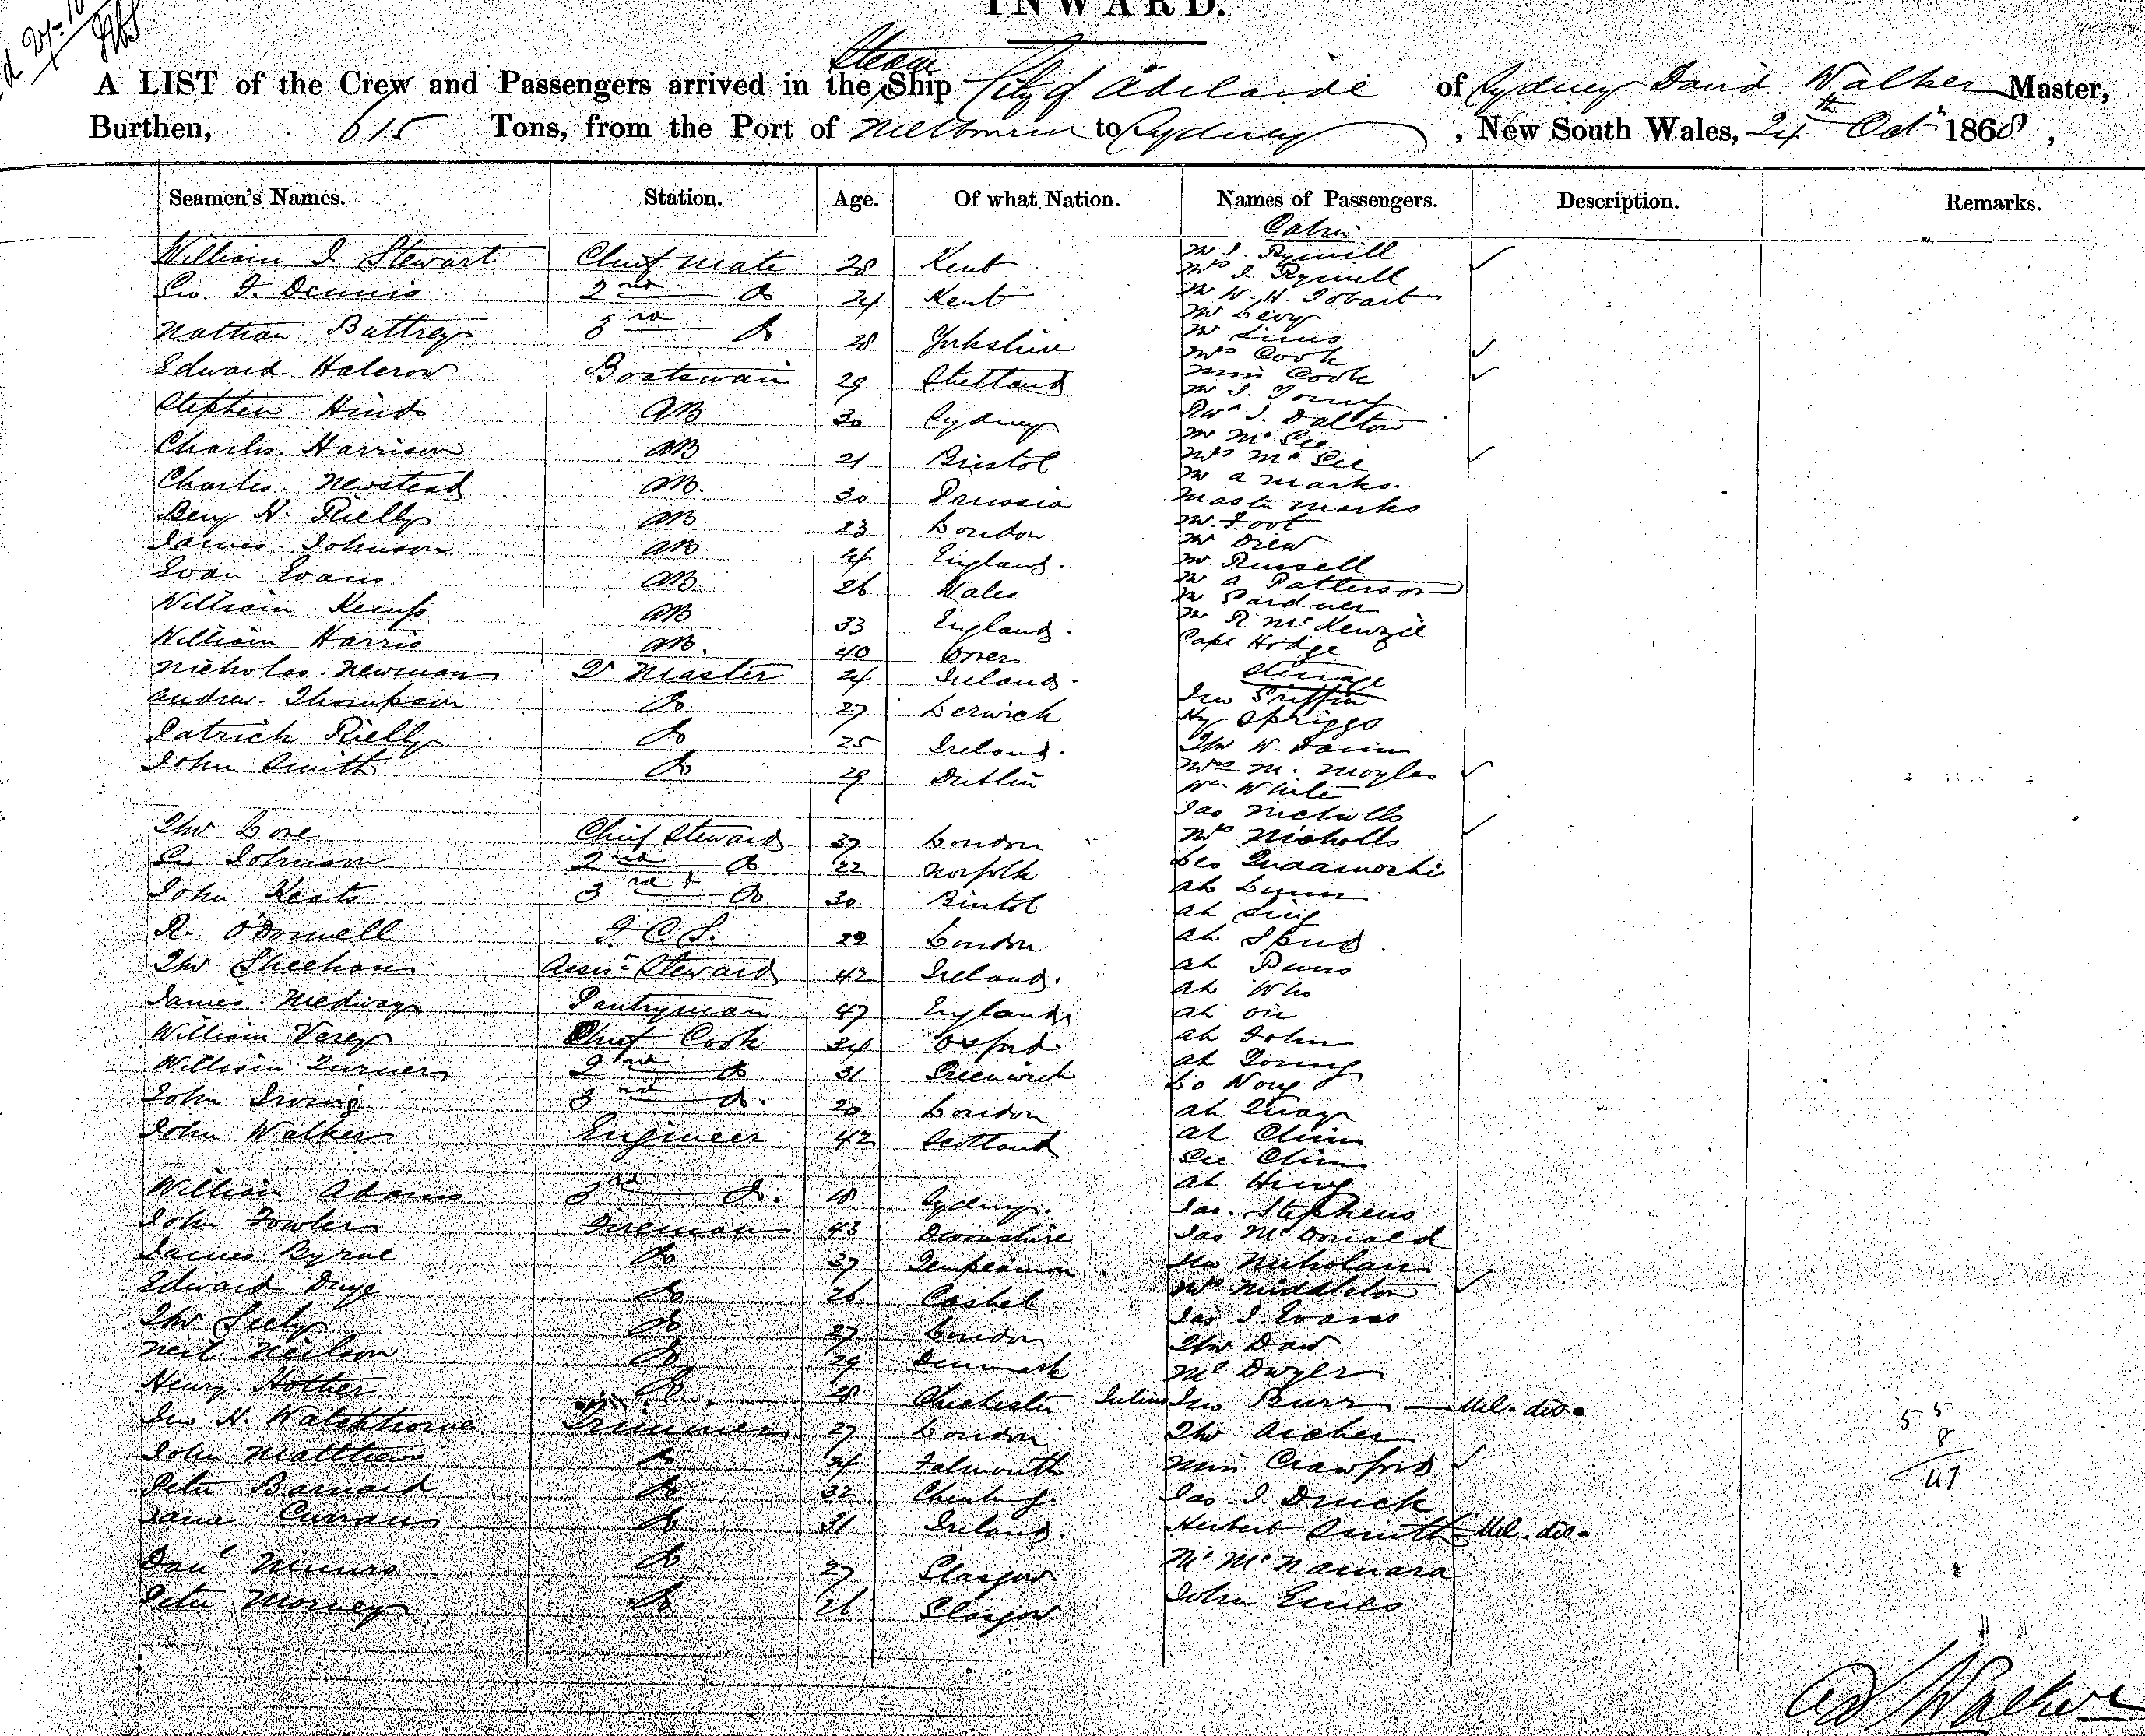 INWARD.
A LIST of the Crew and Passengers arrived in the Steam Ship City of Adelaide of Sydney David Walker Master,
Burthen, 615 Tons, from the Port of Melbourne to Sydney, New South Wales, 24th Oct 1868,
Seamen's Names. Station. Age. Of what Nation. Names of Passengers. Description. Remarks.
Cabin
William J Stewart Chief Mate 28 Kent
Mr J. Rymill
Mrs J. Rymill
Geo. F. Dennis 2nd Do 24 Kent
Mr W. H. Tobart
Mr Levy
Nathan Buttrey 3rd Do 28 Yorkshire
Mr Sims
Mrs Cook
Edward Halcrow Boatswain 29 Shetland
Miss Cook
Mr J. Young
Stephen Hinds AB 30 Sydney
Revd J. Dalton
Mr McGee
Charles Harrison AB 21 Bristol
Mrs McGee
Mr A Marks.
Charles Newstead AB. 30 Prussia
Master Marks
Benj H. Rielly AB 23 London
Mr. Foot
Mr Drew
James Johnson AB 24 England.
Mr Russell
Evan Evans AB 26 Wales
Mr A Patterson
Mr Gardner
William Kemp AB 33 England.
Mr R McKenzie
William Harris AB. 40
Capt Hodge
Steerage
Nicholas Newman Qr Master 24 Ireland.
Jno Griffin
Andrew Thompson Do 27 Lerwick
Hy Spriggs
Patrick Rielly Do 25 Ireland.
Thos W.
John Smith Do 29 Dublin
Mrs M. Moyles
Wm White
Jas Nicholls
Thos Love Chief Steward 37 London
Mrs Nicholls
Geo Johnson 2nd Do 22 Norfolk
Leo
John Keats 3rd Do 30 Bristol
Ah Lynn
Ah Sing
R. O'Donnell F. C. S. 22 London
Ah Spud.
Thos Sheehan Assist Steward 42 Ireland.
Ah
James Medway Pantryman 47 England
Ah Who
Ah
William Verey Chief Cook 34 Oxford
Ah John
William Turner 2nd Do 31 Greenwich
Ah Young
Lo Wong
John Irving 3rd Do. 20 London
Ah Quay
John Walker Engineer 42 Scotland
Ah Chim
Lee Chim
William Adams 3rd Do. 18 Sydney.
Ah Hing
Jas. Stephens
John Fowler Fireman 43 Devonshire
Jas McDonald
James Byrne Do 37
Jno Nicholass
Edward Duye Do 26 Cashel
Mrs Middleton
Jas J. Evans
Thos Seely Do 27 London
Thos Daw
Neil Neilson Do 29 Denmark
Ml Dwyer
Henry Hother Do 28 Chichester
Julius Jno Burr — Mel. dis.
Jno H. Watchhorne Trimmer 27 London
Thos Archer
John Matthew Do 24 Falmouth
Miss Crawford
Peter Barnard Do 32
Jas J. Druck
James Currans Do 31 Ireland.
Herbert Smith Mel. dis.
Danl Munro Do 27 Glasgow.
Ml McNamara
Peter Morney Do 26 Glasgow
John Eules
55
8
47
D Walker